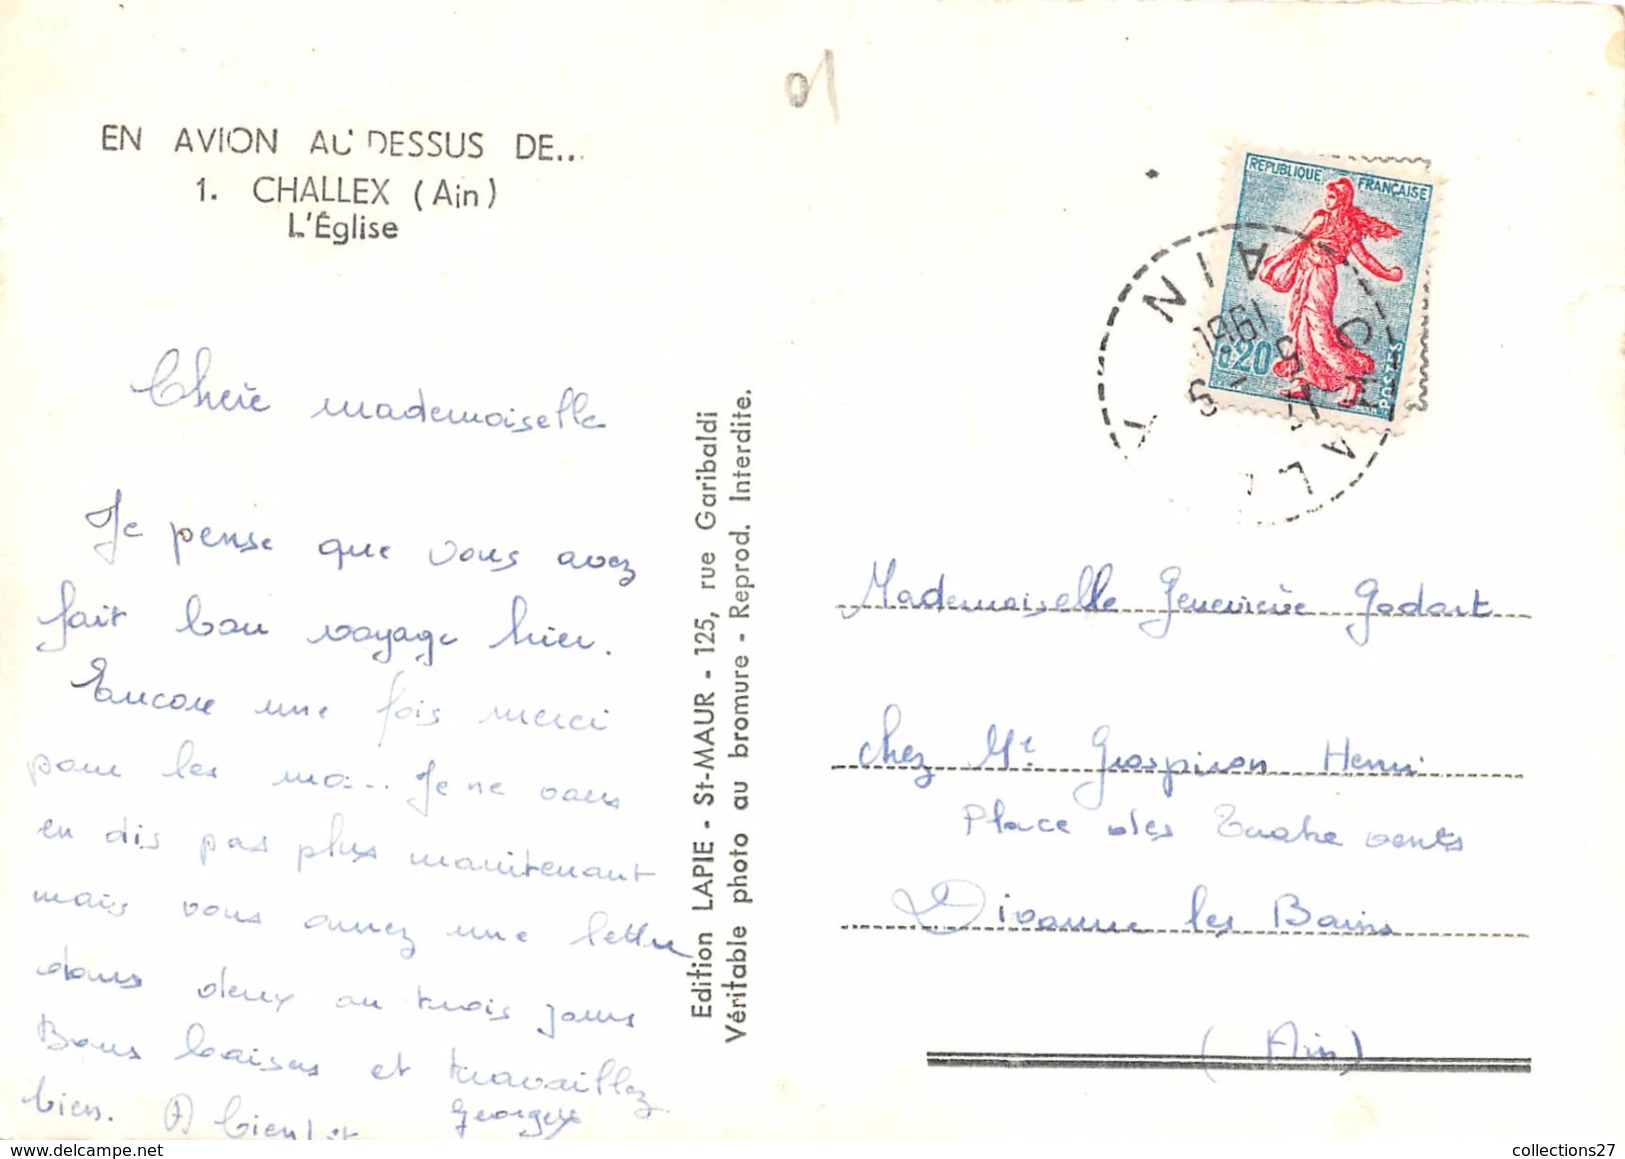 01
EN AVION AU DESSUS DE...
1. CHALLEX (Ain)
L'Église
Cherè mademoiselle
Je pense que vous avez
fait bon voyage hier.
Encore une fois merci
pour les mo... Je ne vous
en dis pas plus maintenant
mais vous aurez une lettre
dans deux ou trois jours
Bons baisers et travaillez
bien. A bientôt
Georges
Edition LAPIE - St-MAUR - 125, rue Garibaldi
Véritable photo au bromure - Reprod. Interdite.
REPUBLIQUE FRANÇAISE
0,20
POSTES
AIN
1961
Mademoiselle Geneviève Godart
chez Mr Grospiron Henri
Place des Quatre vents
Divonne les Bains
(Ain)
collections27